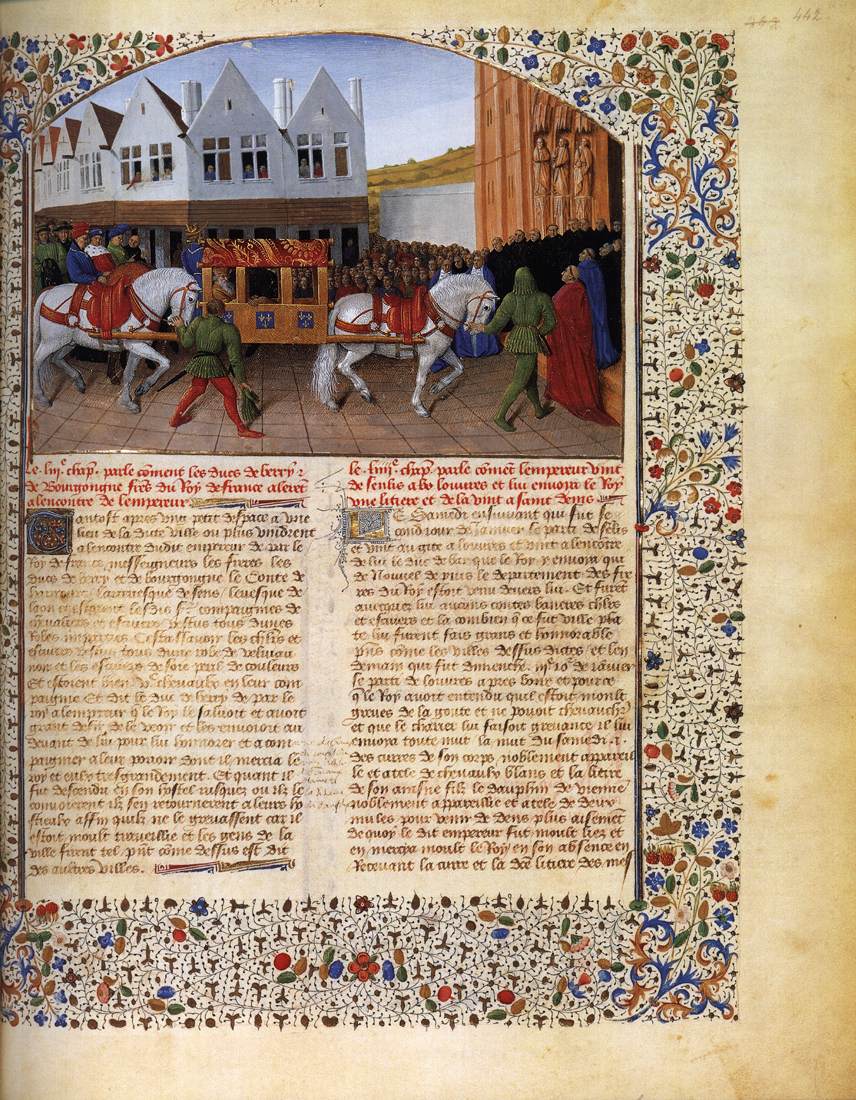 442
Le .liiie. chap. parle cõment les ducs de berry ⁊
de Bourgongne freres du Roy de france alerẽt
a lencontre de lempereur.
Tantost apres vng petit despace a vne
lieu de la dicte ville ou plus vindrent
a lencontre dudit empereur de par le
Roy de france, messeigneurs les freres les
ducs de berry et de bourgongne le Conte de
larcevesque de sens, levesque de
et escuiers vestus tous dunes
robes Cestassavoir les chlrs et
tous dune robe de veluiau
noir et les escuiers de soie de couleurs
Et estoient bien en leur com
paignie Et dit le duc de berry de par le
roy a lempereur q̃ le Roy le saluoit et auoit
grant desir de le veoir et les enuoioit au
deuant de lui pour lui honnorer et acom
paignier a leur pouoir dont il mercia le
roy et eulx tresgrandement. Et quant il
fut descendu en son hostel iusquez ou ilz le
conuoierent ilz sen retournerent a leurs ho
stieulx affin quilz ne le greuassent car il
estoit moult trauaillie et les gens de la
ville firent tel pñt cõme dessus est dit
des aultres villes.
le .liiiie. chap. parle cõmet lempereur vint
de senlis a louures et lui enuoia le Roy
vne litiere et de la vint a saint denis
Le Samedi ensuiuant qui fut se
cond iour de Januier se parti de senlis
et vint au giste a louures et vint a lencõtre
de lui le duc de bar que le Roy y enuoia qui
de Nouuel depuis le departement des fre
res du Roy estoit venu deuers lui. Et furẽt
auecques lui aucuns contes banerez chlrs
et escuiers et la combien q̃ ce fut ville pla
te lui furent fais grans et honnorable
pñs cõme les villes dessus dictes et len
demain qui fut dimenche. iiie io. de iãuier
se parti de louures apres boire et pource
q̃ le Roy auoit entendu quil estoit moult
greues de la goute et ne pouoit cheuaucher
et que le chariot lui faisoit greuance il lui
enuoia toute nuit la nuit du samedi .i.
des curres de son corps, noblement appareil
le et atele de cheuaulx blans et la litiere
de son ainsne filz le daulphin de vienne
noblement appareillie et atele de deux
mules pour venir dedens plus aisemẽt
de quoy le dit empereur fut moult liez et
en mercia moult le Roy en son absence en
Receuant la curre et la dce litiere des mes